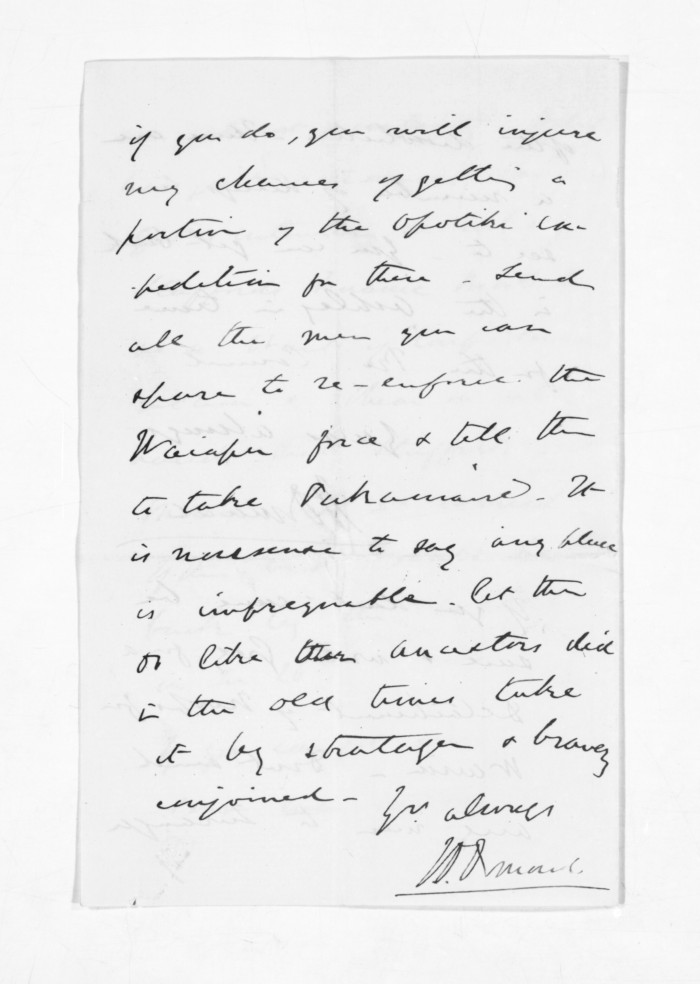 if you do, you will injure
my chances of getting a
portion of the Opotiki ex-
pedition for there - Send
all the men you can
spare to re-enforce the
Waiapu force & tell them
to take Pukamaire - It
is nonsense to say any place
is impregnable. let them
do like their ancestors did
in the old times take
it by stratagem & bravery
conjoined -
Yrs always
J D Ormond.